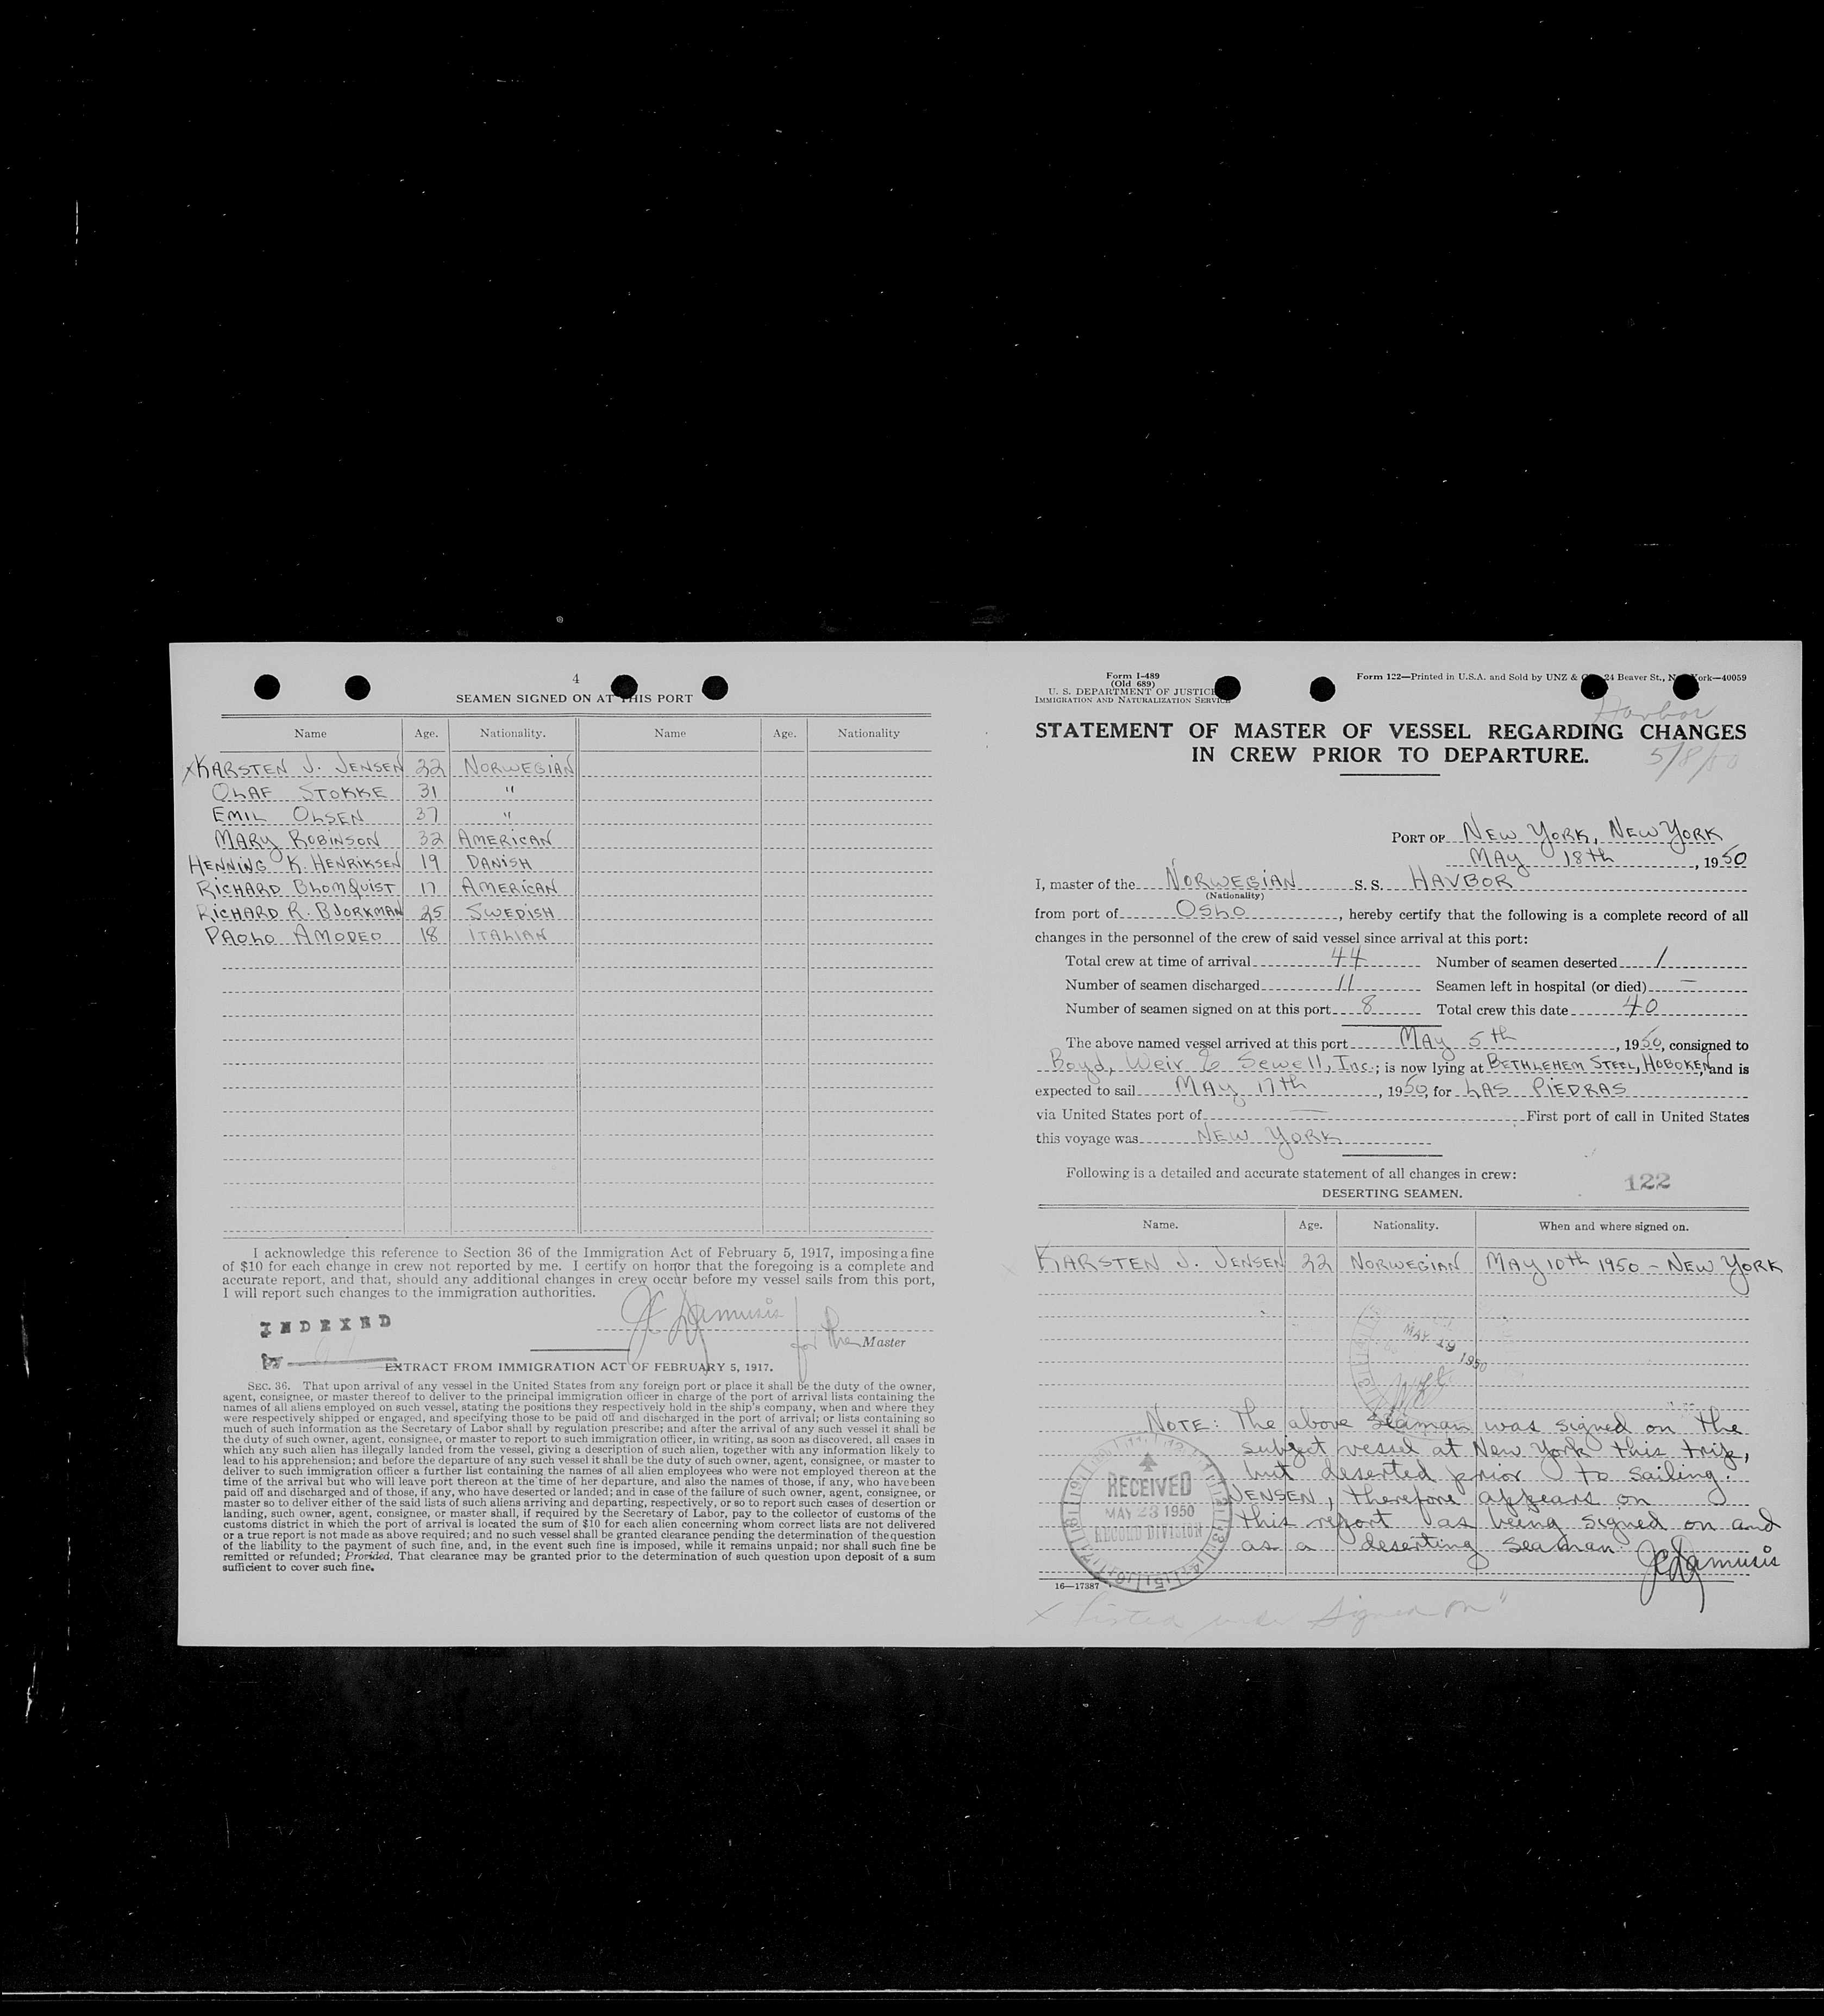 4
SEAMEN SIGNED ON AT THIS PORT
Name Age. Nationality. Name Age. Nationality
X KARSTEN J. JENSEN 22 NORWEGIAN
OLAF STOKKE 31 "
EMIL OLSEN 37 "
MARY ROBINSON 32 AMERICAN
HENNING K. HENRIKSEN 19 DANISH
RICHARD BLOMQUIST 17 AMERICAN
RICHARD R. BJORKMAN 25 SWEDISH
PAOLO AMODEO 18 ITALIAN
I acknowledge this reference to Section 36 of the Immigration Act of February 5, 1917, imposing a fine
of $10 for each change in crew not reported by me. I certify on honor that the foregoing is a complete and
accurate report, and that, should any additional changes in crew occur before my vessel sails from this port,
I will report such changes to the immigration authorities.
INDEXED
for the Master
by
EXTRACT FROM IMMIGRATION ACT OF FEBRUARY 5, 1917.
SEC. 36. That upon arrival of any vessel in the United States from any foreign port or place it shall be the duty of the owner,
agent, consignee, or master thereof to deliver to the principal immigration officer in charge of the port of arrival lists containing the
names of all aliens employed on such vessel, stating the positions they respectively hold in the ship's company, when and where they
were respectively shipped or engaged, and specifying those to be paid off and discharged in the port of arrival; or lists containing so
much of such information as the Secretary of Labor shall by regulation prescribe; and after the arrival of any such vessel it shall be
the duty of such owner, agent, consignee, or master to report to such immigration officer, in writing, as soon as discovered, all cases in
which any such alien has illegally landed from the vessel, giving a description of such alien, together with any information likely to
lead to his apprehension; and before the departure of any such vessel it shall be the duty of such owner, agent, consignee, or master to
deliver to such immigration officer a further list containing the names of all alien employees who were not employed thereon at the
time of the arrival but who will leave port thereon at the time of her departure, and also the names of those, if any, who have been
paid off and discharged and of those, if any, who have deserted or landed; and in case of the failure of such owner, agent, consignee, or
master so to deliver either of the said lists of such aliens arriving and departing, respectively, or so to report such cases of desertion or
landing, such owner, agent, consignee, or master shall, if required by the Secretary of Labor, pay to the collector of customs of the
customs district in which the port of arrival is located the sum of $10 for each alien concerning whom correct lists are not delivered
or a true report is not made as above required; and no such vessel shall be granted clearance pending the determination of the question
of the liability to the payment of such fine, and, in the event such fine is imposed, while it remains unpaid; nor shall such fine be
remitted or refunded; Provided, That clearance may be granted prior to the determination of such question upon deposit of a sum
sufficient to cover such fine.
Form I-489
(Old 689)
U. S. DEPARTMENT OF JUSTICE
IMMIGRATION AND NATURALIZATION SERVICE
Form 122—Printed in U.S.A. and Sold by UNZ & 24 Beaver St., New York—40059
Havbor
STATEMENT OF MASTER OF VESSEL REGARDING CHANGES
IN CREW PRIOR TO DEPARTURE.
5/8/50
PORT OF NEW YORK, NEW YORK
MAY 18th, 1950
I, master of the NORWEGIAN S. S. HAVBOR
(Nationality)
from port of OSLO, hereby certify that the following is a complete record of all
changes in the personnel of the crew of said vessel since arrival at this port:
Total crew at time of arrival 44 Number of seamen deserted 1
Number of seamen discharged 11 Seamen left in hospital (or died) —
Number of seamen signed on at this port 8 Total crew this date 40
The above named vessel arrived at this port MAY 5th, 1950, consigned to
Boyd, Weir & Sewell, Inc.; is now lying at BETHLEHEM STEEL, HOBOKEN, and is
expected to sail MAY 17th, 1950, for LAS PIEDRAS
via United States port of — First port of call in United States
this voyage was NEW YORK
Following is a detailed and accurate statement of all changes in crew:
122
DESERTING SEAMEN.
Name. Age. Nationality. When and where signed on.
X KARSTEN J. JENSEN 22 NORWEGIAN MAY 10th 1950 – NEW YORK
MAY 19 1950
NOTE: The above seaman was signed on the
subject vessel at New York this trip,
but deserted prior to sailing.
JENSEN, therefore appears on
this report as being signed on and
as a deserting seaman
RECEIVED
MAY 23 1950
RECORD DIVISION
16—17387
X Listed under Signed On"